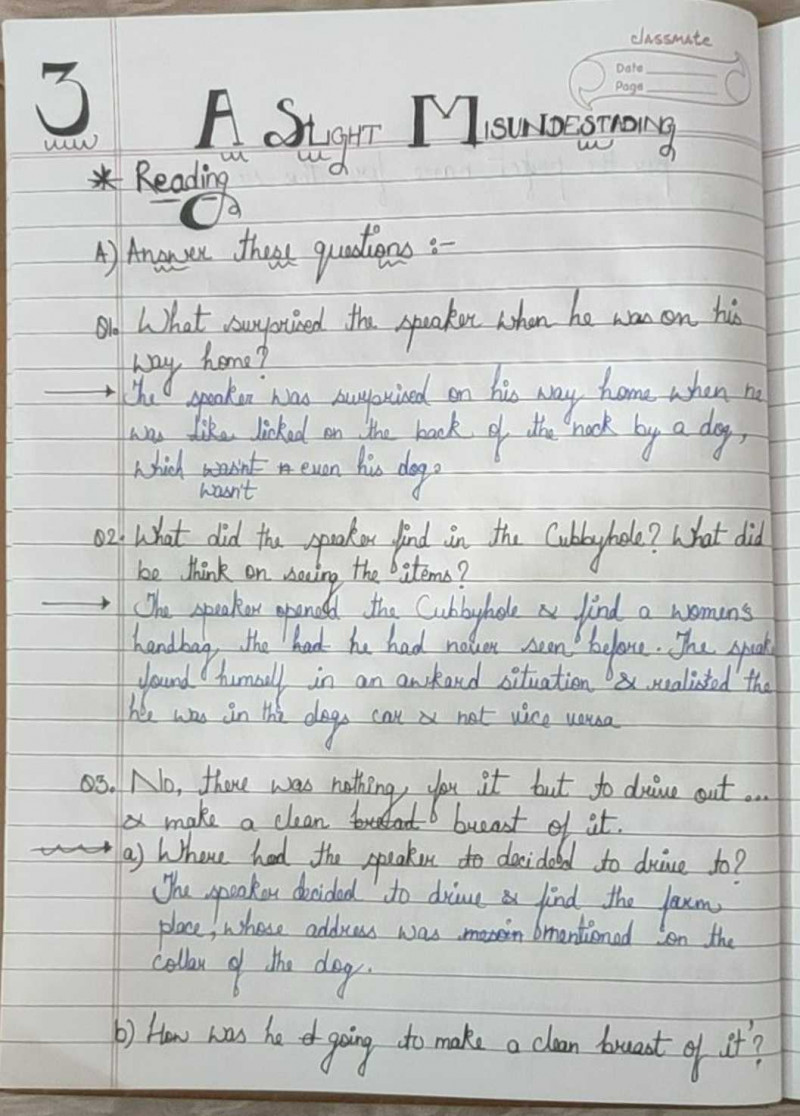 classmate
Date
Page
3
A SLIGHT MISUNDESTADING
* Reading
A) Answer these questions :-
Q1. What surprised the speaker when he was on his
way home?
→ The speaker was surprised on his way home when he
was like licked on the back of the neck by a dog,
which wasn't even his dog.
wasn't
Q2. What did the speaker find in the Cubbyhole? What did
be think on seeing the items?
→ The speaker opened the Cubbyhole & find a womens
handbag, the had he had never seen before. The speak
found himself in an awkard situation & realisted the
he was in the dogs car & not vice versa
Q3. No, there was nothing for it but to drive out ...
& make a clean breast of it.
→ a) Where had the speaker to decided to drive to?
The speaker decided to drive & find the farm
place, whose address was mentioned on the
collar of the dog.
b) How was he going to make a clean breast of it'?